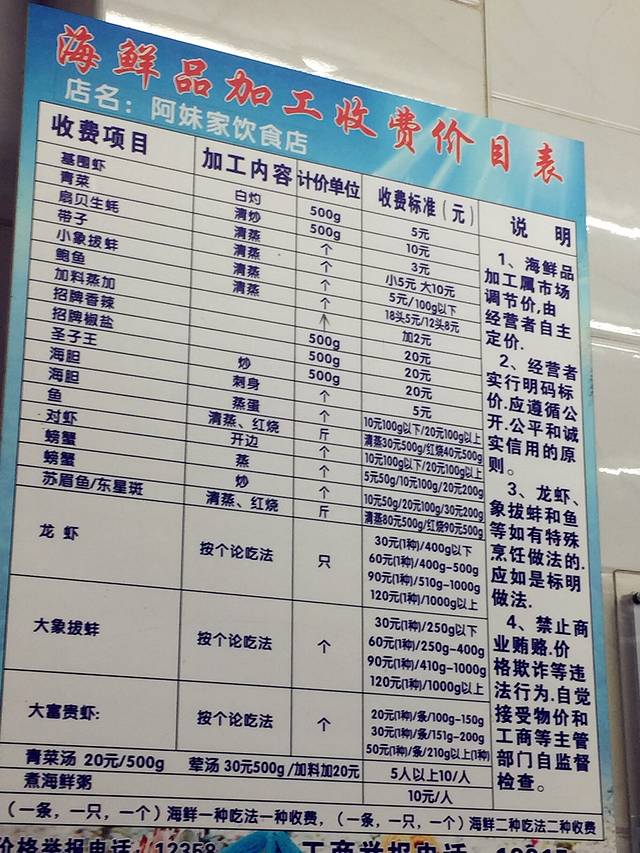 海鲜品加工收费价目表
店名：阿妹家饮食店
收费项目 加工内容 计价单位 收费标准（元） 说 明
基围虾 白灼 500g 5元
青菜 清炒 500g 10元
扇贝生蚝 清蒸 个 3元
带子 清蒸 个 小5元 大10元
小象拔蚌 清蒸 个 5元/100g以下
鲍鱼 清蒸 个 18头5元/12头8元
加料蒸加 个 加2元
招牌香辣 500g 20元
招牌椒盐 500g 20元
圣子王 炒 500g 20元
海胆 刺身 个 5元
海胆 蒸蛋 个 10元100g以下/20元100g以上
鱼 清蒸、红烧 斤 清蒸30元500g/红烧40元500g
对虾 开边 个 10元100g以下/20元100g以上
螃蟹 蒸 个 5元50g/10元100g/20元200g
螃蟹 炒 个 10元50g/20元100g/30元200g
苏眉鱼/东星斑 清蒸、红烧 斤 清蒸80元500g/红烧90元500g
龙 虾 按个论吃法 只
30元(1种)/400g以下
60元(1种)/400g-500g
90元(1种)/510g-1000g
120元(1种)/1000g以上
大象拔蚌 按个论吃法 个
30元(1种)/250g以下
60元(1种)/250g-400g
90元(1种)/410g-1000g
120元(1种)/1000g以上
大富贵虾: 按个论吃法 个
20元(1种)/条/100g-150g
30元(1种)/条/151g-200g
50元(1种)/条/210g以上(1种)
青菜汤 20元/500g 荤汤 30元500g/加料加20元 5人以上10/人
煮海鲜粥 10元/人
1、海鲜品
加工属市场
调节价,由
经营者自主
定价.
2、经营者
实行明码标
价.应遵循公
开.公平和诚
实信用的原
则。
3、龙虾、
象拔蚌和鱼
等如有特殊
烹饪做法的.
应如是标明
做法.
4、禁止商
业贿赂.价
格欺诈等违
法行为.自觉
接受物价和
工商等主管
部门自监督
检查。
（一条，一只，一个）海鲜一种吃法一种收费，（一条，一只，一个）海鲜二种吃法二种收费
价格举报电话：12358 工商举报电话：12315